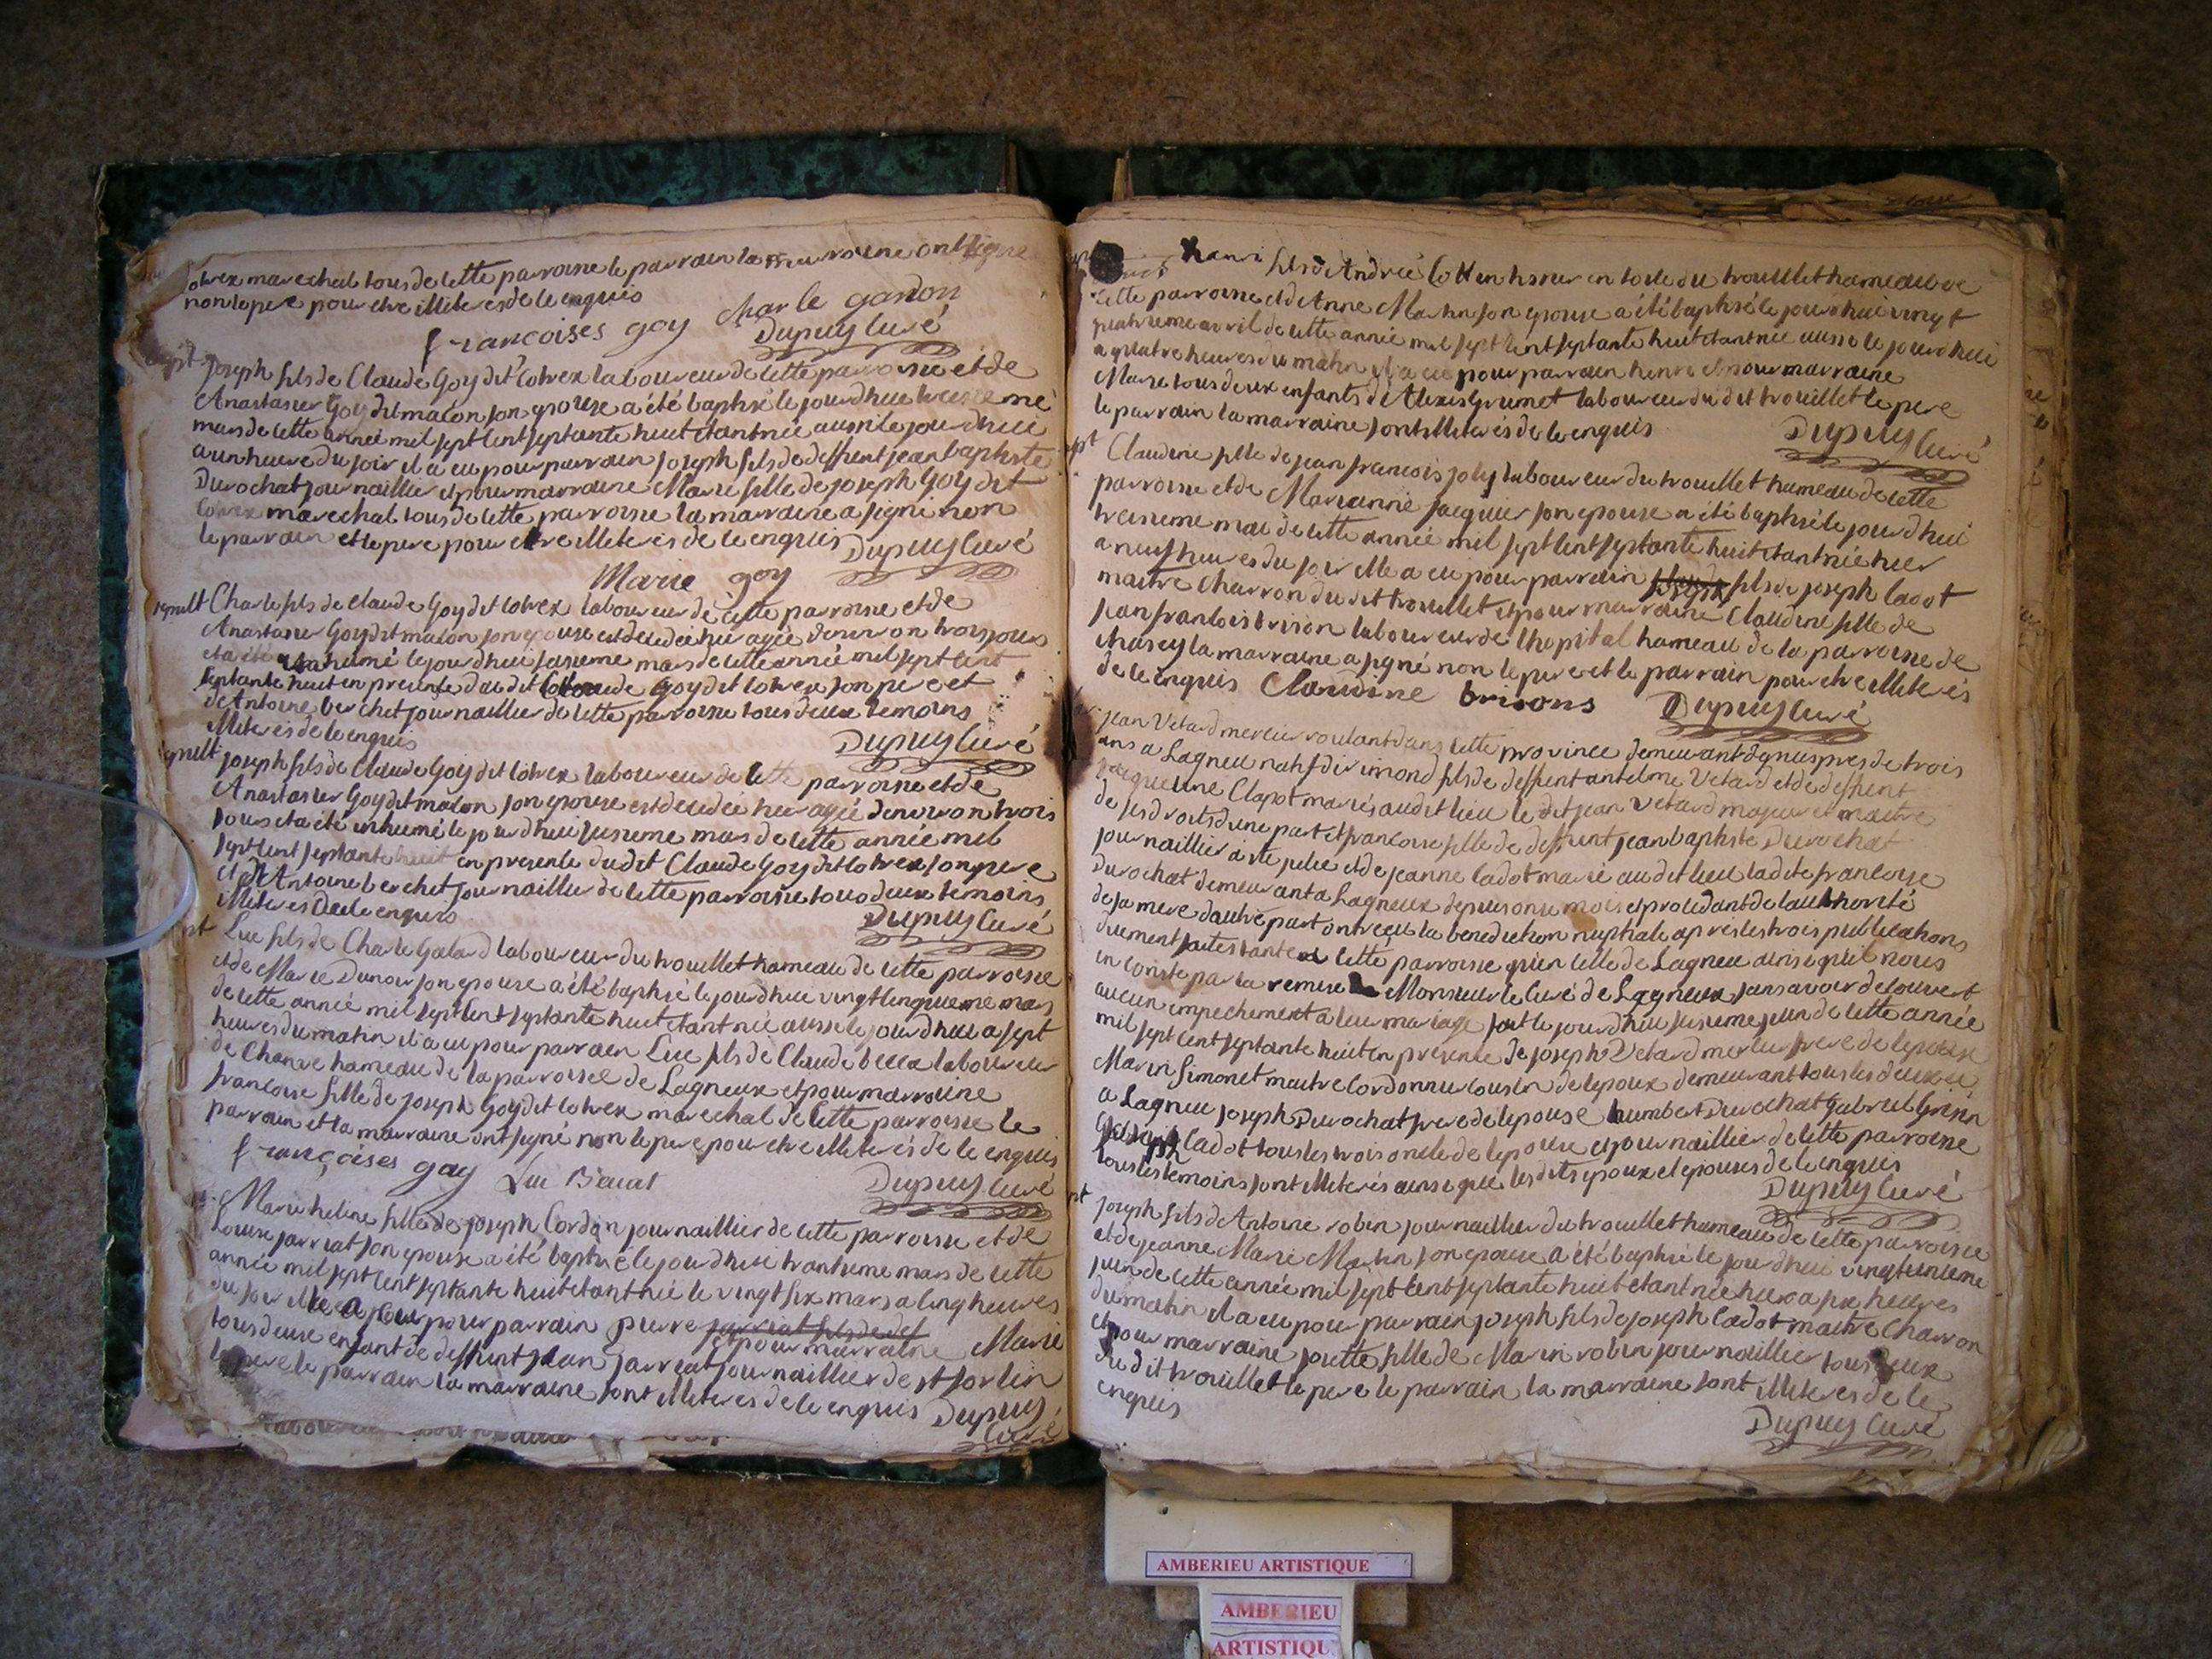 cotrex marechal tous de cette parroisse le parrain la marraine ont signé
non le pere pour etre illiterés de ce enquis
francoises goy charle gardon
Dupuy curé
bapt Joseph fils de Claude Goy dit cotrex laboureur de cette parroisse et de
Anastasie Goy dit macon son epouse a été baptisé le jourdhui treisieme
mars de cette année mil sept cent septante huit etant née aussi le jourdhui
a un heure du soir il a eu pour parrain joseph fils de deffunt jean baptiste
Durochat journaillier et pour marraine Marie fille de joseph Goy dit
cotrex marechal tous de cette parroisse la marraine a signé non
le parrain et le pere pour etre illiterés de ce enquis Dupuy curé
Marie goy
sepult Charle fils de claude Goy dit cotrex laboureur de cette parroisse et de
Anastasie Goy dit macon son epouse est decedée hier agée denviron trois jours
et a été inhumé le jourdhui sesieme mars de cette année mil sept cent
septante huit en presence du dit Claude Goy dit cotrex son pere et
de Antoine berchet journaillier de cette parroisse tous deux temoins
illiterés de ce enquis
Dupuy curé
sepult joseph fils de Claude Goy dit cotrex laboureur de cette parroisse et de
Anastasie Goy dit macon son epouse est decedée hier agée denviron trois
jours et a été inhumé le jourdhui sesieme mars de cette année mil
sept cent septante huit en presence dudit Claude Goy dit cotrex son pere
et de Antoine berchet journaillier de cette parroise tous deux temoins
illiterés de ce enquis
Dupuy curé
pt Luc fils de Charle Galand laboureur du trouillet hameau de cette parroisse
et de Marie Dunoir son epouse a été baptisé le jourdhui vingt cinquieme mars
de cette année mil sept cent septante huit etant née aussi le jourdhui a sept
heures du matin il a eu pour parrain Luc fils de Claude laboureur
de Chanve hameau de la parroisse de Lagneux et pour marraine
francoise fille de joseph Goy dit cotrex marechal de cette parroisse le
parrain et la marraine ont signé non le pere pour etre illiterés de ce enquis
françoises goy Luc
Dupuy curé
Marie heline fille de joseph Cordon journaillier de cette parroisse et de
Louise jarriat son epouse a été baptisée le jourdhui trantieme mars de cette
année mil sept cent septante huit etant née le vingt six mars a cinq heures
du soir elle a eu pour parrain pierre jarriat fils de def
et pour marraine Marie
tous deux enfant de deffunt jean jarriat journaillier de st sorlin
le pere le parrain la marraine sont illiterés de ce enquis Dupuy
curé
henri fils de Andrée tisseur en toile du trouillet hameau de
cette parroisse et de Anne Martin son epouse a été baptisé le jourdhui vingt
quatrieme avril de cette année mil sept cent septante huit etant née aussi le jourdhui
a quatre heures du matin il a eu pour parrain henri et pour marraine
Marie tous deux enfants de Alexis Grumet laboureur du dit trouillet le pere
le parrain la marraine sont illiterés de ce enquis
Dupuy curé
pt Claudine fille de jean francois joly laboureur du trouillet hameau de cette
parroisse et de Marianne jacquier son epouse a été baptisé le jourdhui
treisieme mai de cette année mil sept cent septante huit etant née hier
a neuf heures du soir elle a eu pour parrain fils de joseph Cadot
maitre charron du dit trouillet et pour marraine Claudine fille de
jean francois brison laboureur de lhopital hameau de la parroisse de
charey la marraine a signé non le pere et le parrain pour etre illiterés
de ce enquis Claudine brisons Dupuy curé
jean Vetard mercier roulant dans cette province demeurant depuis pres de trois
ans a Lagneu natif de fils de deffunt antelme Vetard et de deffunt
jacqueline Clapot mariés audit lieu le dit jean Vetard majeur et maitre
de ses droits dune part et francoise fille de deffunt jean baptiste Durochat
journaillier a ste julie et de jeanne Cadot marié au dit lieu ladite francoise
Durochat demeurant a Lagneux depuis onse mois et procedant de lauthorité
de sa mere dautre part ont reçu la benediction nuptiale apres les trois publications
duement faites tant en cette parroisse quen celle de Lagneu ainsi quil nous
en conste par la remise Monsieur le curé de Lagneux sans avoir decouvert
aucun empechement a leur mariage fait le jourdhui sesieme juin de cette année
mil sept cent septante huit en presence de joseph Vetard mercier frere de lepoux
Marin Simonet maitre Cordonnier cousin de lepoux demeurant tous les deux
a Lagneu joseph Durochat frere de lepouse humbert Durochat Gabriel Grisin
joseph Cadot tous les trois oncle de lepouse et journaillier de cette parroisse
tous les temoins sont illiterés ainsi que les dits epoux et epouses de ce enquis
Dupuy curé
pt joseph fils de Antoine robin journaillier du trouillet hameau de cette parroisse
et de jeanne Marie Martin son epouse a été baptisé le jourdhui vingt unieme
juin de cette année mil sept cent septante huit etant née hier a six heures
du matin il a eu pour parrain joseph fils de joseph Cadot maitre Charron
et pour marraine josette fille de Marin robin journaillier tous deux
du dit trouillet le pere le parrain la marraine sont illiteres de ce
enquis
Dupuy curé
AMBERIEU ARTISTIQUE
AMBERIEU
ARTISTIQU